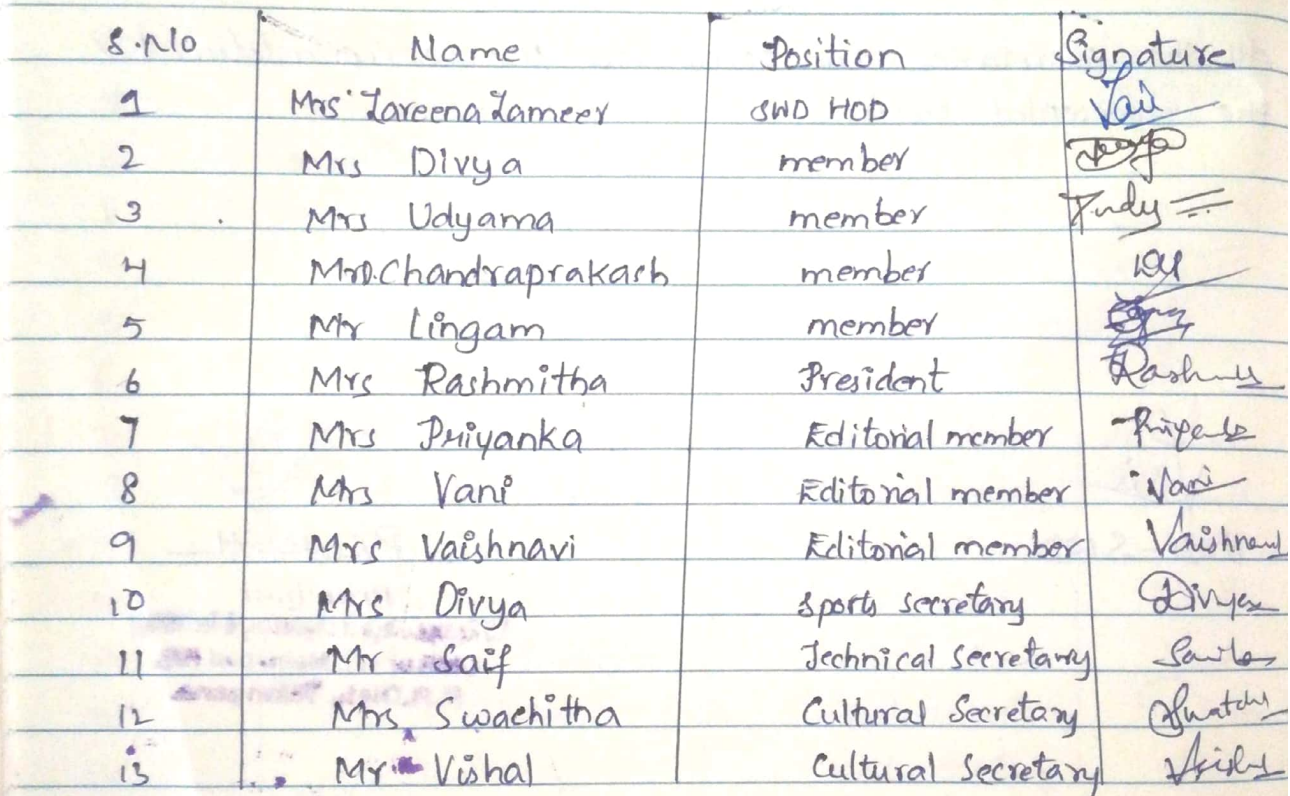 S.No Name Position Signature
1 Mrs Zareena Zameer SWD HOD
2 Mrs Divya member
3 Mrs Udyama member
4 Mr D.Chandraprakash member
5 Mr Lingam member
6 Mrs Rashmitha President
7 Mrs Priyanka Editorial member
8 Mrs Vani Editorial member Vani
9 Mrs Vaishnavi Editorial member Vaishnavi
10 Mrs Divya Sports Secretary Divya
11 Mr Saif Technical Secretary
12 Mrs Swachitha Cultural Secretary
13 Mr Vishal Cultural Secretary